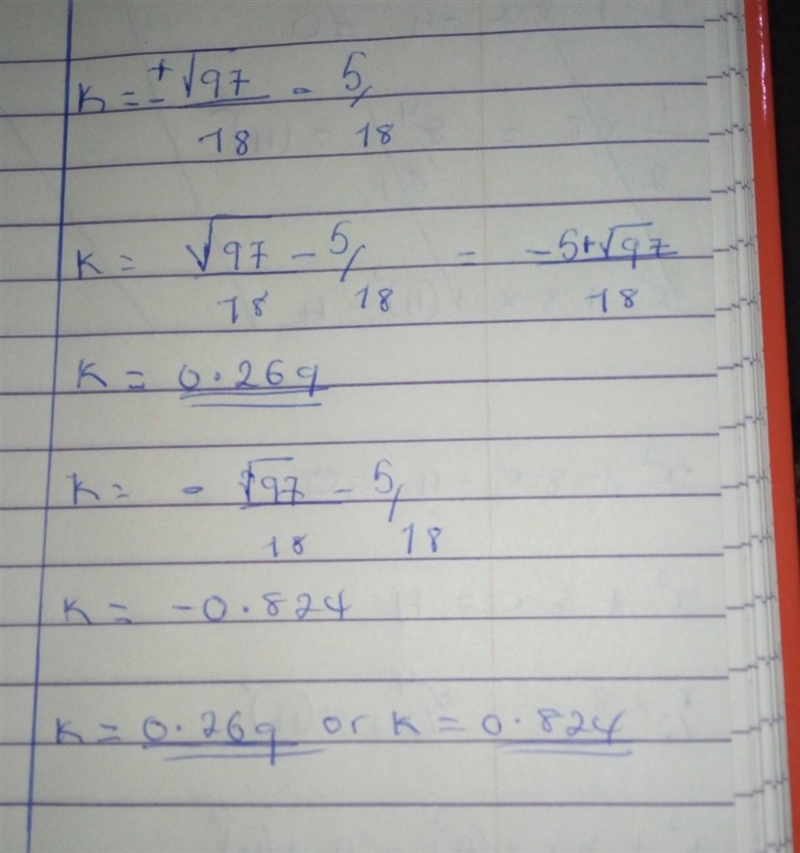 K = ±√97/18 - 5/18
K = √97/18 - 5/18 = -5+√97/18
K = 0.269
K = - √97/18 - 5/18
K = -0.824
K = 0.269 or K = 0.824